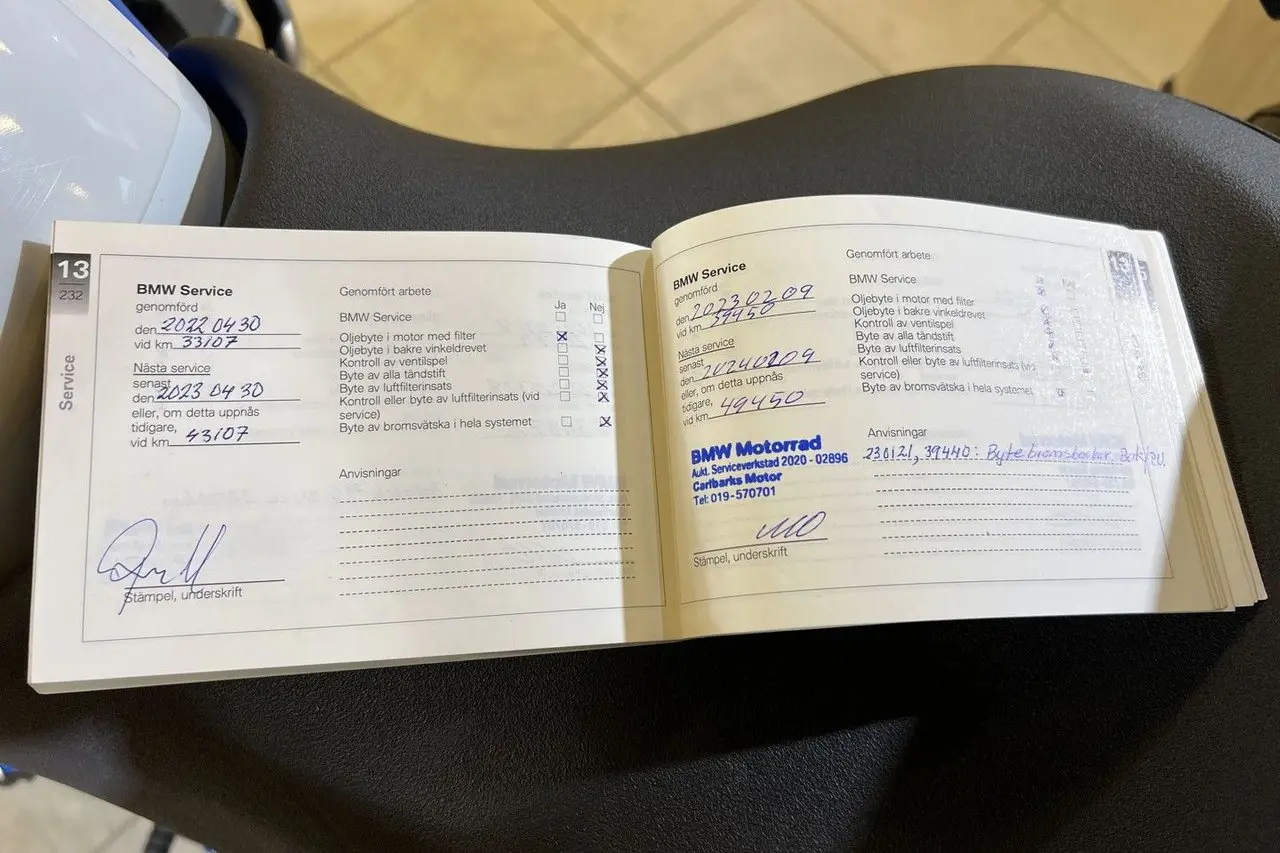 13
232
Service
BMW Service
genomförd
den 2022 04 30
vid km 33107
Nästa service
senast
den 2023 04 30
eller, om detta uppnås
tidigare,
vid km 43107
Stämpel, underskrift
Genomfört arbete
Ja Nej
BMW Service
Oljebyte i motor med filter
Oljebyte i bakre vinkeldrevet
Kontroll av ventilspel
Byte av alla tändstift
Byte av luftfilterinsats
Kontroll eller byte av luftfilterinsats (vid
service)
Byte av bromsvätska i hela systemet
Anvisningar
BMW Service
genomförd
den 2023 02 09
vid km 39450
Nästa service
senast
den 2024 02 09
eller, om detta uppnås
tidigare,
vid km 49450
BMW Motorrad
Aukt. Serviceverkstad 2020 - 02896
Carlbarks Motor
Tel: 019-570701
Stämpel, underskrift
Genomfört arbete
BMW Service
Oljebyte i motor med filter
Oljebyte i bakre vinkeldrevet
Kontroll av ventilspel
Byte av alla tändstift
Byte av luftfilterinsats
Kontroll eller byte av luftfilterinsats (vid
service)
Byte av bromsvätska i hela systemet
Anvisningar
230121, 39440: Byte bromsbackar Bak